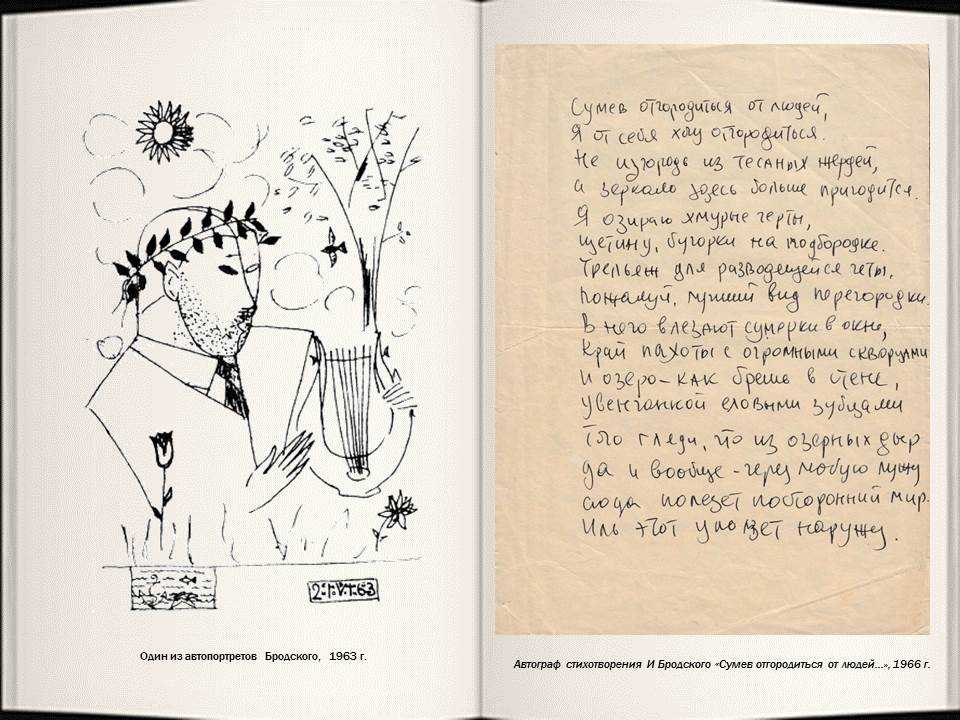 Сумев отгородиться от людей,
Я от себя хочу отгородиться.
Не изгородь из тесаных жердей,
а зеркало здесь больше пригодится.
Я озираю хмурые черты,
щетину, бугорки на подбородке.
Трельяж для разводещейся четы,
пожалуй, лучший вид перегородки.
В него влезают сумерки в окне,
край пахоты с огромными скворцами
и озеро – как брешь в стене,
увенчанной еловыми зубцами
Того гляди, что из озерных дыр
да и вообще – через любую лужу
сюда полезет посторонний мир.
Иль этот уползет наружу.
Один из автопортретов Бродского, 1963 г.
Автограф стихотворения И Бродского «Сумев отгородиться от людей...», 1966 г.